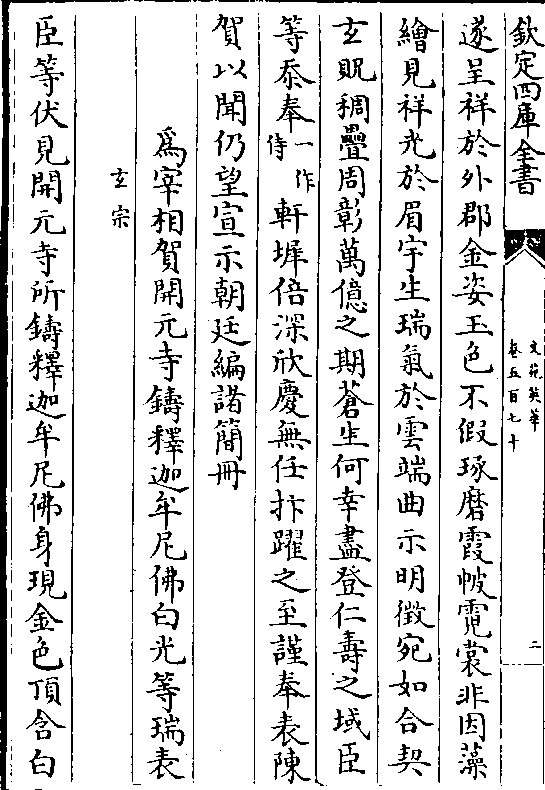 欽定四庫全書
文苑英華
卷五百七十
二
遂呈祥於外郡金姿玉色不假琢磨霞帔霓裳非因藻
繪見祥光於眉宇生瑞氣於雲端曲示明徵宛如合契
玄貺稠疊周彰萬億之期蒼生何幸盡登仁壽之域臣
等忝奉一作侍軒墀倍深欣慶無任抃躍之至謹奉表陳
賀以聞仍望宣示朝廷編諸簡冊
為宰相賀開元寺鑄釋迦牟尼佛白光等瑞表
玄宗
臣等伏見開元寺所鑄釋迦牟尼佛身現金色頂含白